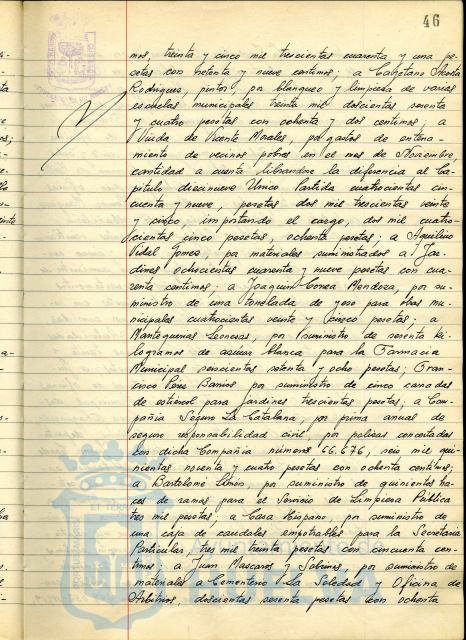 46
mos, treinta y cinco mil trescientas cuarenta y una pe-
setas con setenta y nueve centimos; a Cayetano
Rodriguez, pintor, por blanqueo y limpieza de varias
escuelas municipales treinta mil doscientas sesenta
y cuatro pesetas con ochenta y dos centimos; a
Viuda de Vicente Morales, por gastos de enterra-
miento de vecinos pobres en el mes de Noviembre,
cantidad a cuenta librandose la diferencia al Ca-
pitulo diecinueve Unico Partida cuatrocientas cin-
cuenta y nueve, pesetas dos mil trescientas veinte
y cinco, importando el cargo, dos mil cuatro-
cientas cinco pesetas, ochenta pesetas; a Aquilino
Vidal Gomez, por materiales suministrados a Jar-
dines ochocientas cuarenta y nueve pesetas con cua-
renta centimos; a Joaquin Correa Mendoza, por su-
ministro de una tonelada de yeso para obras mu-
nicipales cuatrocientas veinte y cinco pesetas; a
Mantequerias Leonesas, por suministro de sesenta ki-
logramos de azucar blanca para la Farmacia
Municipal seiscientas setenta y ocho pesetas; Fran-
cisco Pérez Barrios por suministro de cinco
de estiercol para jardines trescientas pesetas; a Com-
pañia Seguro La Catalana, por prima anual de
seguro responsabilidad civil, por polizas concertadas
con dicha Compañia numeros 66.676, seis mil qui-
nientas noventa y cuatro pesetas con ochenta centimos;
a Bartolomé Limón, por suministro de quinientos ha-
ces de ramas para el Servicio de Limpieza Pública
tres mil pesetas; a Casa Hispano, por suministro de
una caja de caudales empotrables para la Secretaria
Particular, tres mil treinta pesetas con cincuenta cen-
timos; a Juan Mascaros y Sobrinos, por suministro de
materiales a Cementerio La Soledad y Oficina de
Arbitrios, doscientas sesenta pesetas con ochenta